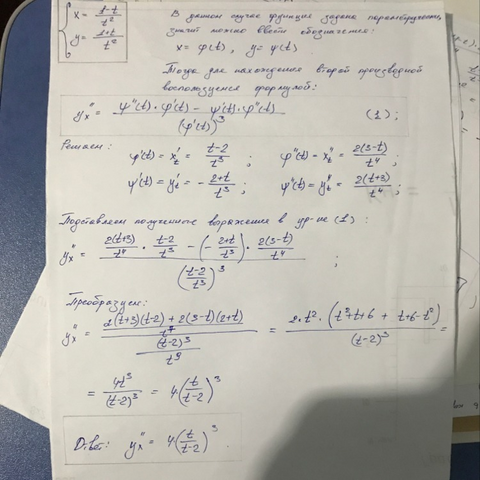 { x = (1-t)/t² В данном случае функция задана параметрически,
y = (1+t)/t² значит можно ввести обозначения:
x = φ(t), y = ψ(t)
Тогда для нахождения второй производной
воспользуемся формулой:
yₓ'' = (ψ''(t)·φ'(t) - ψ'(t)·φ''(t))/(φ'(t))³ (1);
Решаем:
φ'(t) = xₜ' = (t-2)/t³ ; φ''(t) = xₜ'' = 2(3-t)/t⁴ ;
ψ'(t) = yₜ' = - (2+t)/t³ ; ψ''(t) = yₜ'' = 2(t+3)/t⁴ ;
Подставляем полученные выражения в ур-ие (1):
yₓ'' = (2(t+3)/t⁴ · (t-2)/t³ - (-(2+t)/t³) · 2(3-t)/t⁴)/((t-2)/t³)³ ;
Преобразуем:
yₓ'' = ((2(t+3)(t-2) + 2(3-t)(2+t))/t⁷)/((t-2)³/t⁹) = 2·t²·(t²+t+6 + t+6-t²)/(t-2)³ =
= 4t³/(t-2)³ = 4(t/(t-2))³
Ответ: yₓ'' = 4(t/(t-2))³.